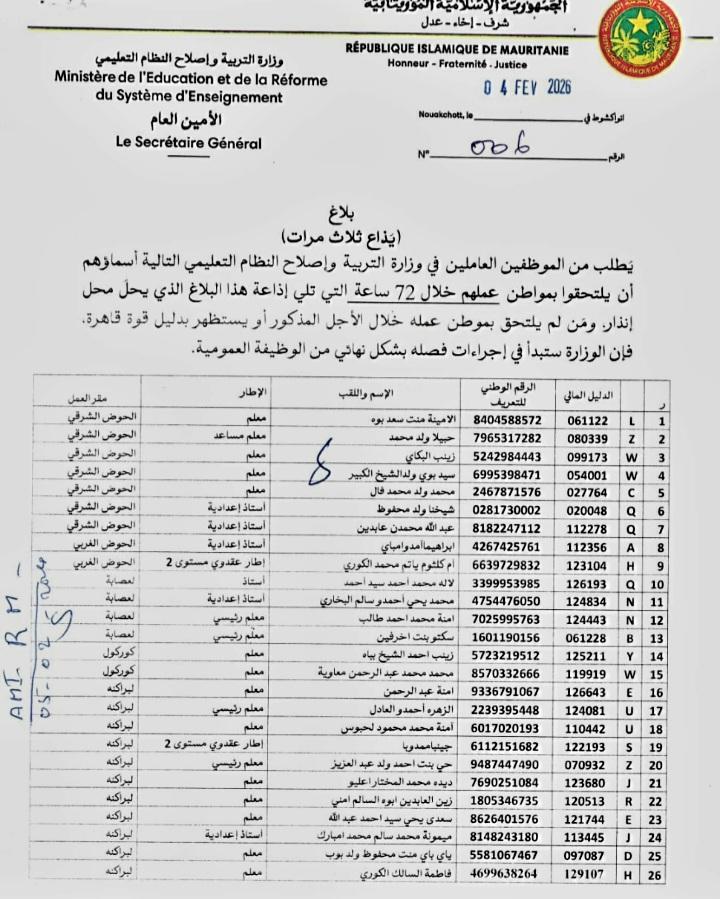 الجمهورية الإسلامية الموريتانية
شرف - إخاء - عدل
RÉPUBLIQUE ISLAMIQUE DE MAURITANIE
Honneur - Fraternité - Justice
وزارة التربية وإصلاح النظام التعليمي
Ministère de l'Education et de la Réforme
du Système d'Enseignement
الأمين العام
Le Secrétaire Général
04 FEV 2026
Nouakchott, le انواكشوط في
N° 006 الرقم
بلاغ
(يَذاع ثلاث مرات)
يَطلب من الموظفين العاملين في وزارة التربية وإصلاح النظام التعليمي التالية أسماؤهم
أن يلتحقوا بمواطن عملهم خلال 72 ساعة التي تلي إذاعة هذا البلاغ الذي يحلّ محل
إنذار. ومَن لم يلتحق بموطن عمله خلال الأجل المذكور أو يستظهر بدليل قوة قاهرة.
فإن الوزارة ستبدأ في إجراءات فصله بشكل نهائي من الوظيفة العمومية.
ر الدليل المالي الرقم الوطني للتعريف الإسم واللقب الإطار مقر العمل
1 L 061122 8404588572 الامينة منت سعد بوه معلم الحوض الشرقي
2 Z 080339 7965317282 حبيلا ولد محمد معلم مساعد الحوض الشرقي
3 W 099173 5242984443 زينب البكاي معلم الحوض الشرقي
4 W 054001 6995398471 سيد بوي ولد الشيخ الكبير معلم الحوض الشرقي
5 C 027764 2467871576 محمد ولد محمد فال معلم الحوض الشرقي
6 Q 020048 0281730002 شيخنا ولد محفوظ أستاذ إعدادية الحوض الشرقي
7 Q 112278 8182247112 عبد الله محمدن عابدين أستاذ إعدادية الحوض الشرقي
8 A 112356 4267425761 ابراهيما آمدو امباي أستاذ إعدادية الحوض الغربي
9 H 123104 6639729832 ام كلثوم ياتم محمد الكوري إطار عقدوي مستوى 2 الحوض الغربي
10 Q 126193 3399953985 لاله محمد احمد سيد احمد أستاذ لعصابة
11 N 124834 4754476050 محمد يحي أحمدو سالم البخاري أستاذ إعدادية لعصابة
12 N 124443 7025995763 امنة محمد احمد طالب معلم رئيسي لعصابة
13 B 061228 1601190156 سكتو بنت اخرفين معلم رئيسي لعصابة
14 Y 125211 5723219512 زينب احمد الشيخ بباه معلم كوركول
15 W 119919 8570332666 محمد محمد عبد الرحمن معاوية معلم كوركول
16 E 126643 9336791067 امنة عبد الرحمن معلم لبراكنه
17 U 124081 2239395448 الزهره أحمدو العادل معلم رئيسي لبراكنه
18 U 110442 6017020193 آمنة محمد محمود لحبوس معلم لبراكنه
19 S 122193 6112151682 جينبا ممدوبا إطار عقدوي مستوى 2 لبراكنه
20 Z 070932 9487447490 حي بنت احمد ولد عبد العزيز معلم رئيسي لبراكنه
21 J 123680 7690251084 ديده محمد المختار اعليو معلم لبراكنه
22 R 120513 1805346735 زين العابدين ابوه السالم امني معلم لبراكنه
23 E 121744 8626401576 سعدى يحي سيد احمد عبد الله معلم لبراكنه
24 J 113445 8148243180 ميمونة محمد سالم محمد امبارك أستاذ إعدادية لبراكنه
25 D 097087 5581067467 ياي باي منت محفوظ ولد بوب معلم لبراكنه
26 H 129107 4699638264 فاطمة السالك الكوري معلم لبراكنه
AMI - R M -
05-02